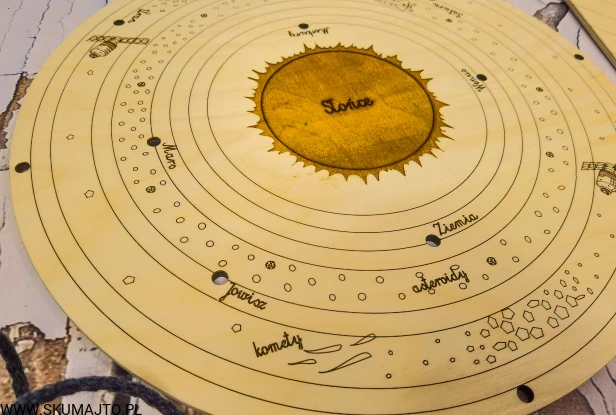 Saturn
Uran
Merkury
Wenus
Słońce
Mars
Ziemia
asteroidy
Jowisz
komety
WWW.SKUMAJTO.PL